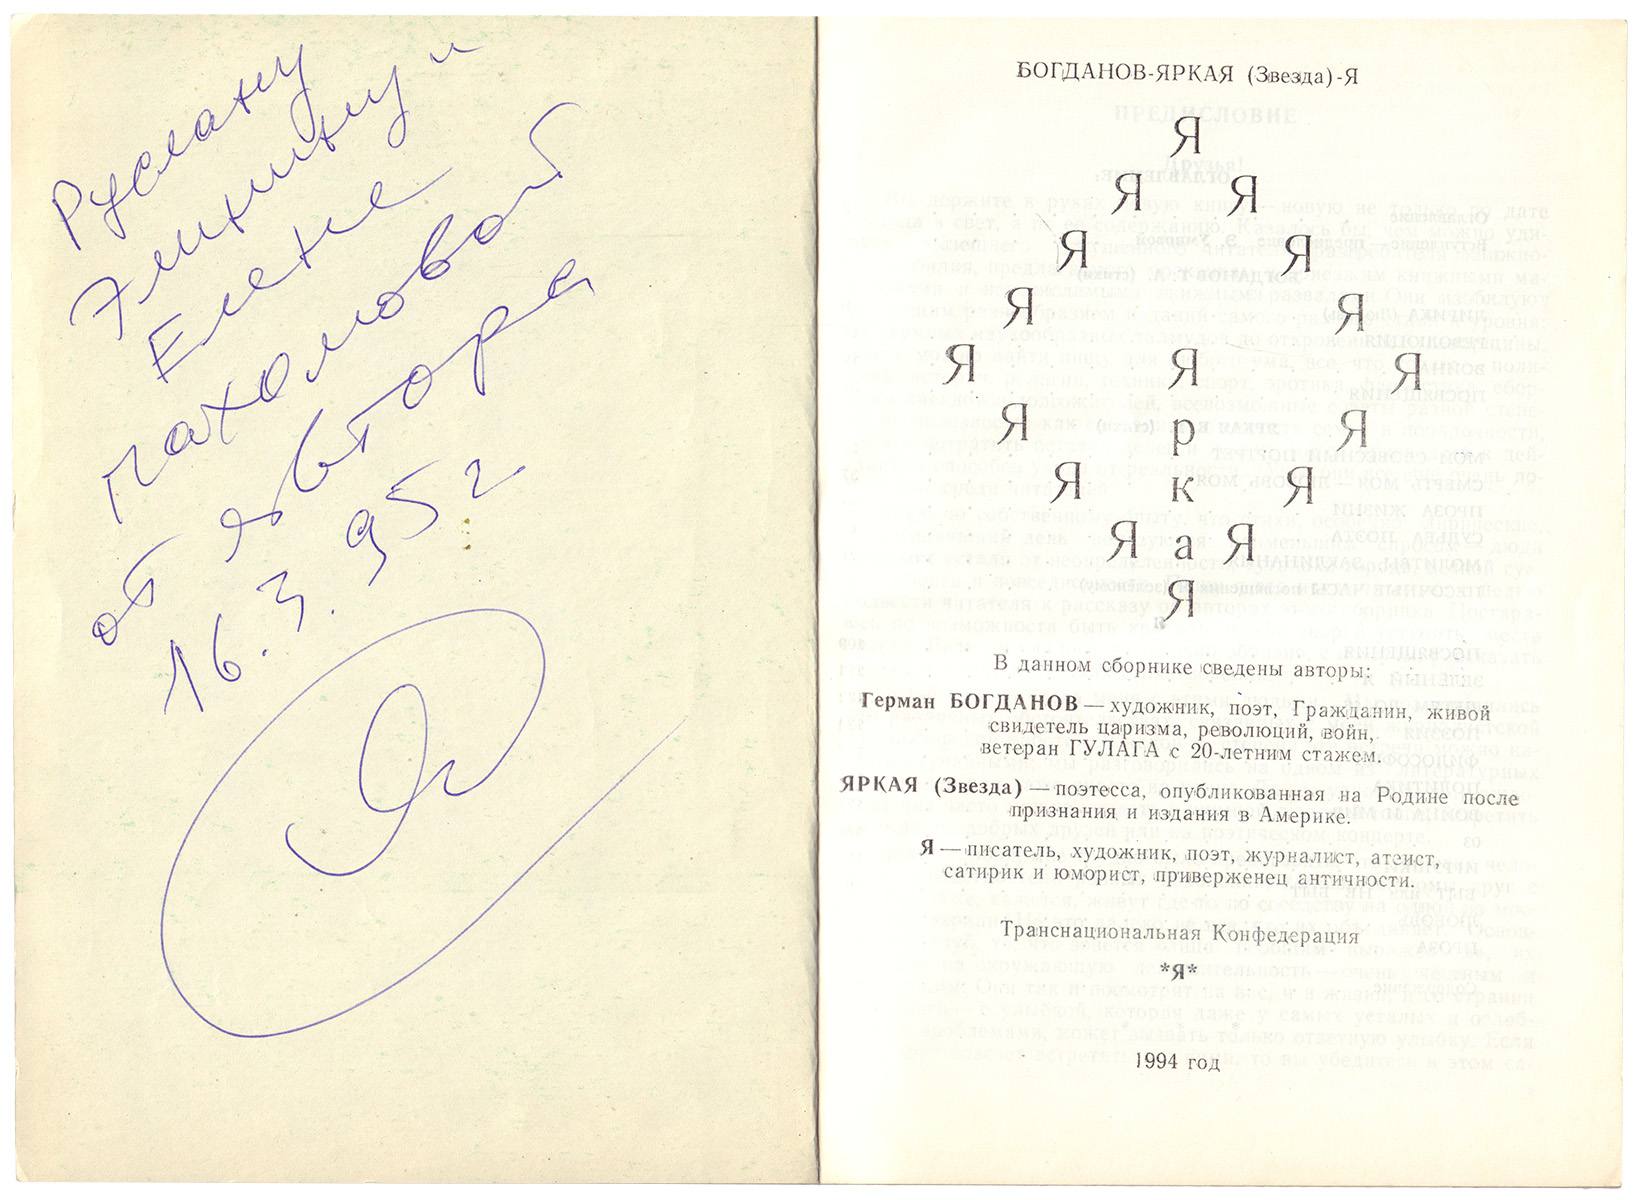 Руслану
Элинину и
Елене
Пахомовой
от Явтора
16.3.95 г
Я
БОГДАНОВ-ЯРКАЯ (Звезда)-Я
Я
Я Я
Я Я
Я Я
Я Я Я
Я р Я
Я к Я
Я а Я
Я
В данном сборнике сведены авторы:
Герман БОГДАНОВ — художник, поэт, Гражданин, живой
свидетель царизма, революций, войн,
ветеран ГУЛАГА с 20-летним стажем.
ЯРКАЯ (Звезда) — поэтесса, опубликованная на Родине после
признания и издания в Америке.
Я — писатель, художник, поэт, журналист, атеист,
сатирик и юморист, приверженец античности.
Транснациональная Конфедерация
*Я*
1994 год